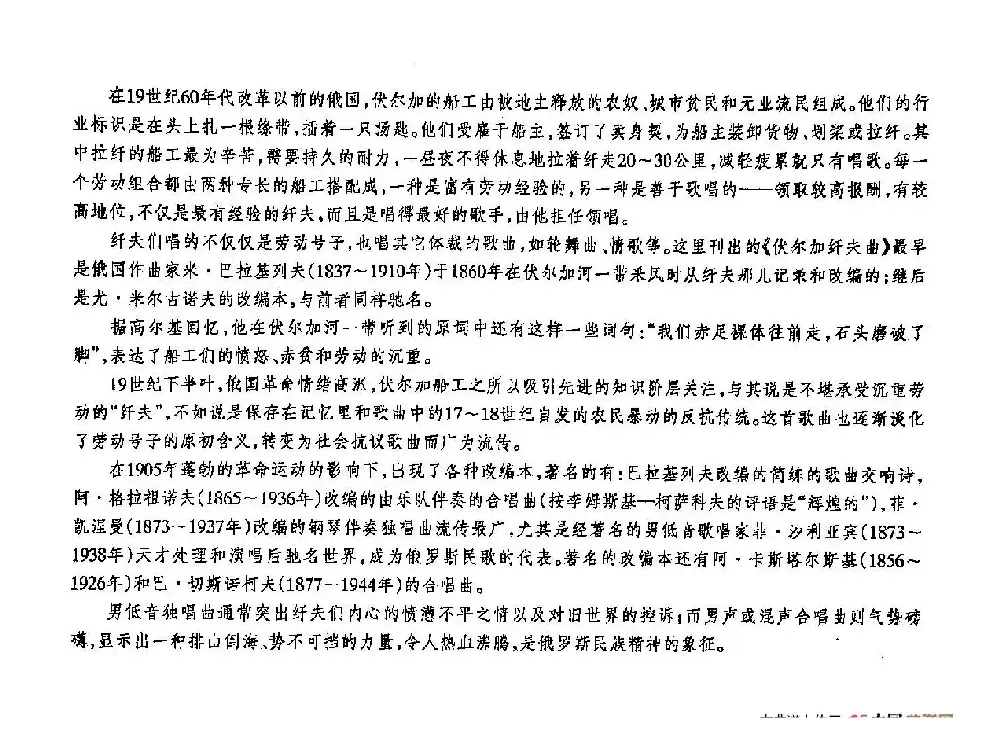 在19世纪60年代改革以前的俄国,伏尔加的船工由被地主释放的农奴、城市贫民和无业流民组成。他们的行
业标识是在头上扎一根绦带,插着一只汤匙。他们受雇于船主,签订了卖身契,为船主装卸货物、划桨或拉纤。其
中拉纤的船工最为辛苦,需要持久的耐力,一昼夜不得休息地拉着纤走20~30公里,减轻疲累就只有唱歌。每一
个劳动组合都由两种专长的船工搭配成,一种是富有劳动经验的,另一种是善于歌唱的——领取较高报酬,有较
高地位,不仅是最有经验的纤夫,而且是唱得最好的歌手,由他担任领唱。
纤夫们唱的不仅仅是劳动号子,也唱其它体裁的歌曲,如轮舞曲、情歌等。这里刊出的《伏尔加纤夫曲》最早
是俄国作曲家米·巴拉基列夫(1837~1910年)于1860年在伏尔加河一带采风时从纤夫那儿记录和改编的;继后
是尤·米尔古诺夫的改编本,与前者同样驰名。
据高尔基回忆,他在伏尔加河一带听到的原词中还有这样一些词句:“我们赤足裸体往前走,石头磨破了
脚”,表达了船工们的愤怒、赤贫和劳动的沉重。
19世纪下半叶,俄国革命情绪高涨,伏尔加船工之所以吸引先进的知识阶层关注,与其说是不堪承受沉重劳
动的“纤夫”,不如说是保存在记忆里和歌曲中的17~18世纪自发的农民暴动的反抗传统。这首歌曲也逐渐淡化
了劳动号子的原初含义,转变为社会抗议歌曲而广为流传。
在1905年蓬勃的革命运动的影响下,出现了各种改编本,著名的有:巴拉基列夫改编的简练的歌曲交响诗,
阿·格拉祖诺夫(1865~1936年)改编的由乐队伴奏的合唱曲(按李姆斯基—柯萨科夫的评语是“辉煌的”),菲·
凯涅曼(1873~1937年)改编的钢琴伴奏独唱曲流传最广,尤其是经著名的男低音歌唱家菲·沙利亚宾(1873~
1938年)天才处理和演唱后驰名世界,成为俄罗斯民歌的代表。著名的改编本还有阿·卡斯塔尔斯基(1856~
1926年)和巴·切斯诺柯夫(1877~1944年)的合唱曲。
男低音独唱曲通常突出纤夫们内心的愤懑不平之情以及对旧世界的控诉;而男声或混声合唱曲则气势磅
礴,显示出一种排山倒海、势不可挡的力量,令人热血沸腾、是俄罗斯民族精神的象征。